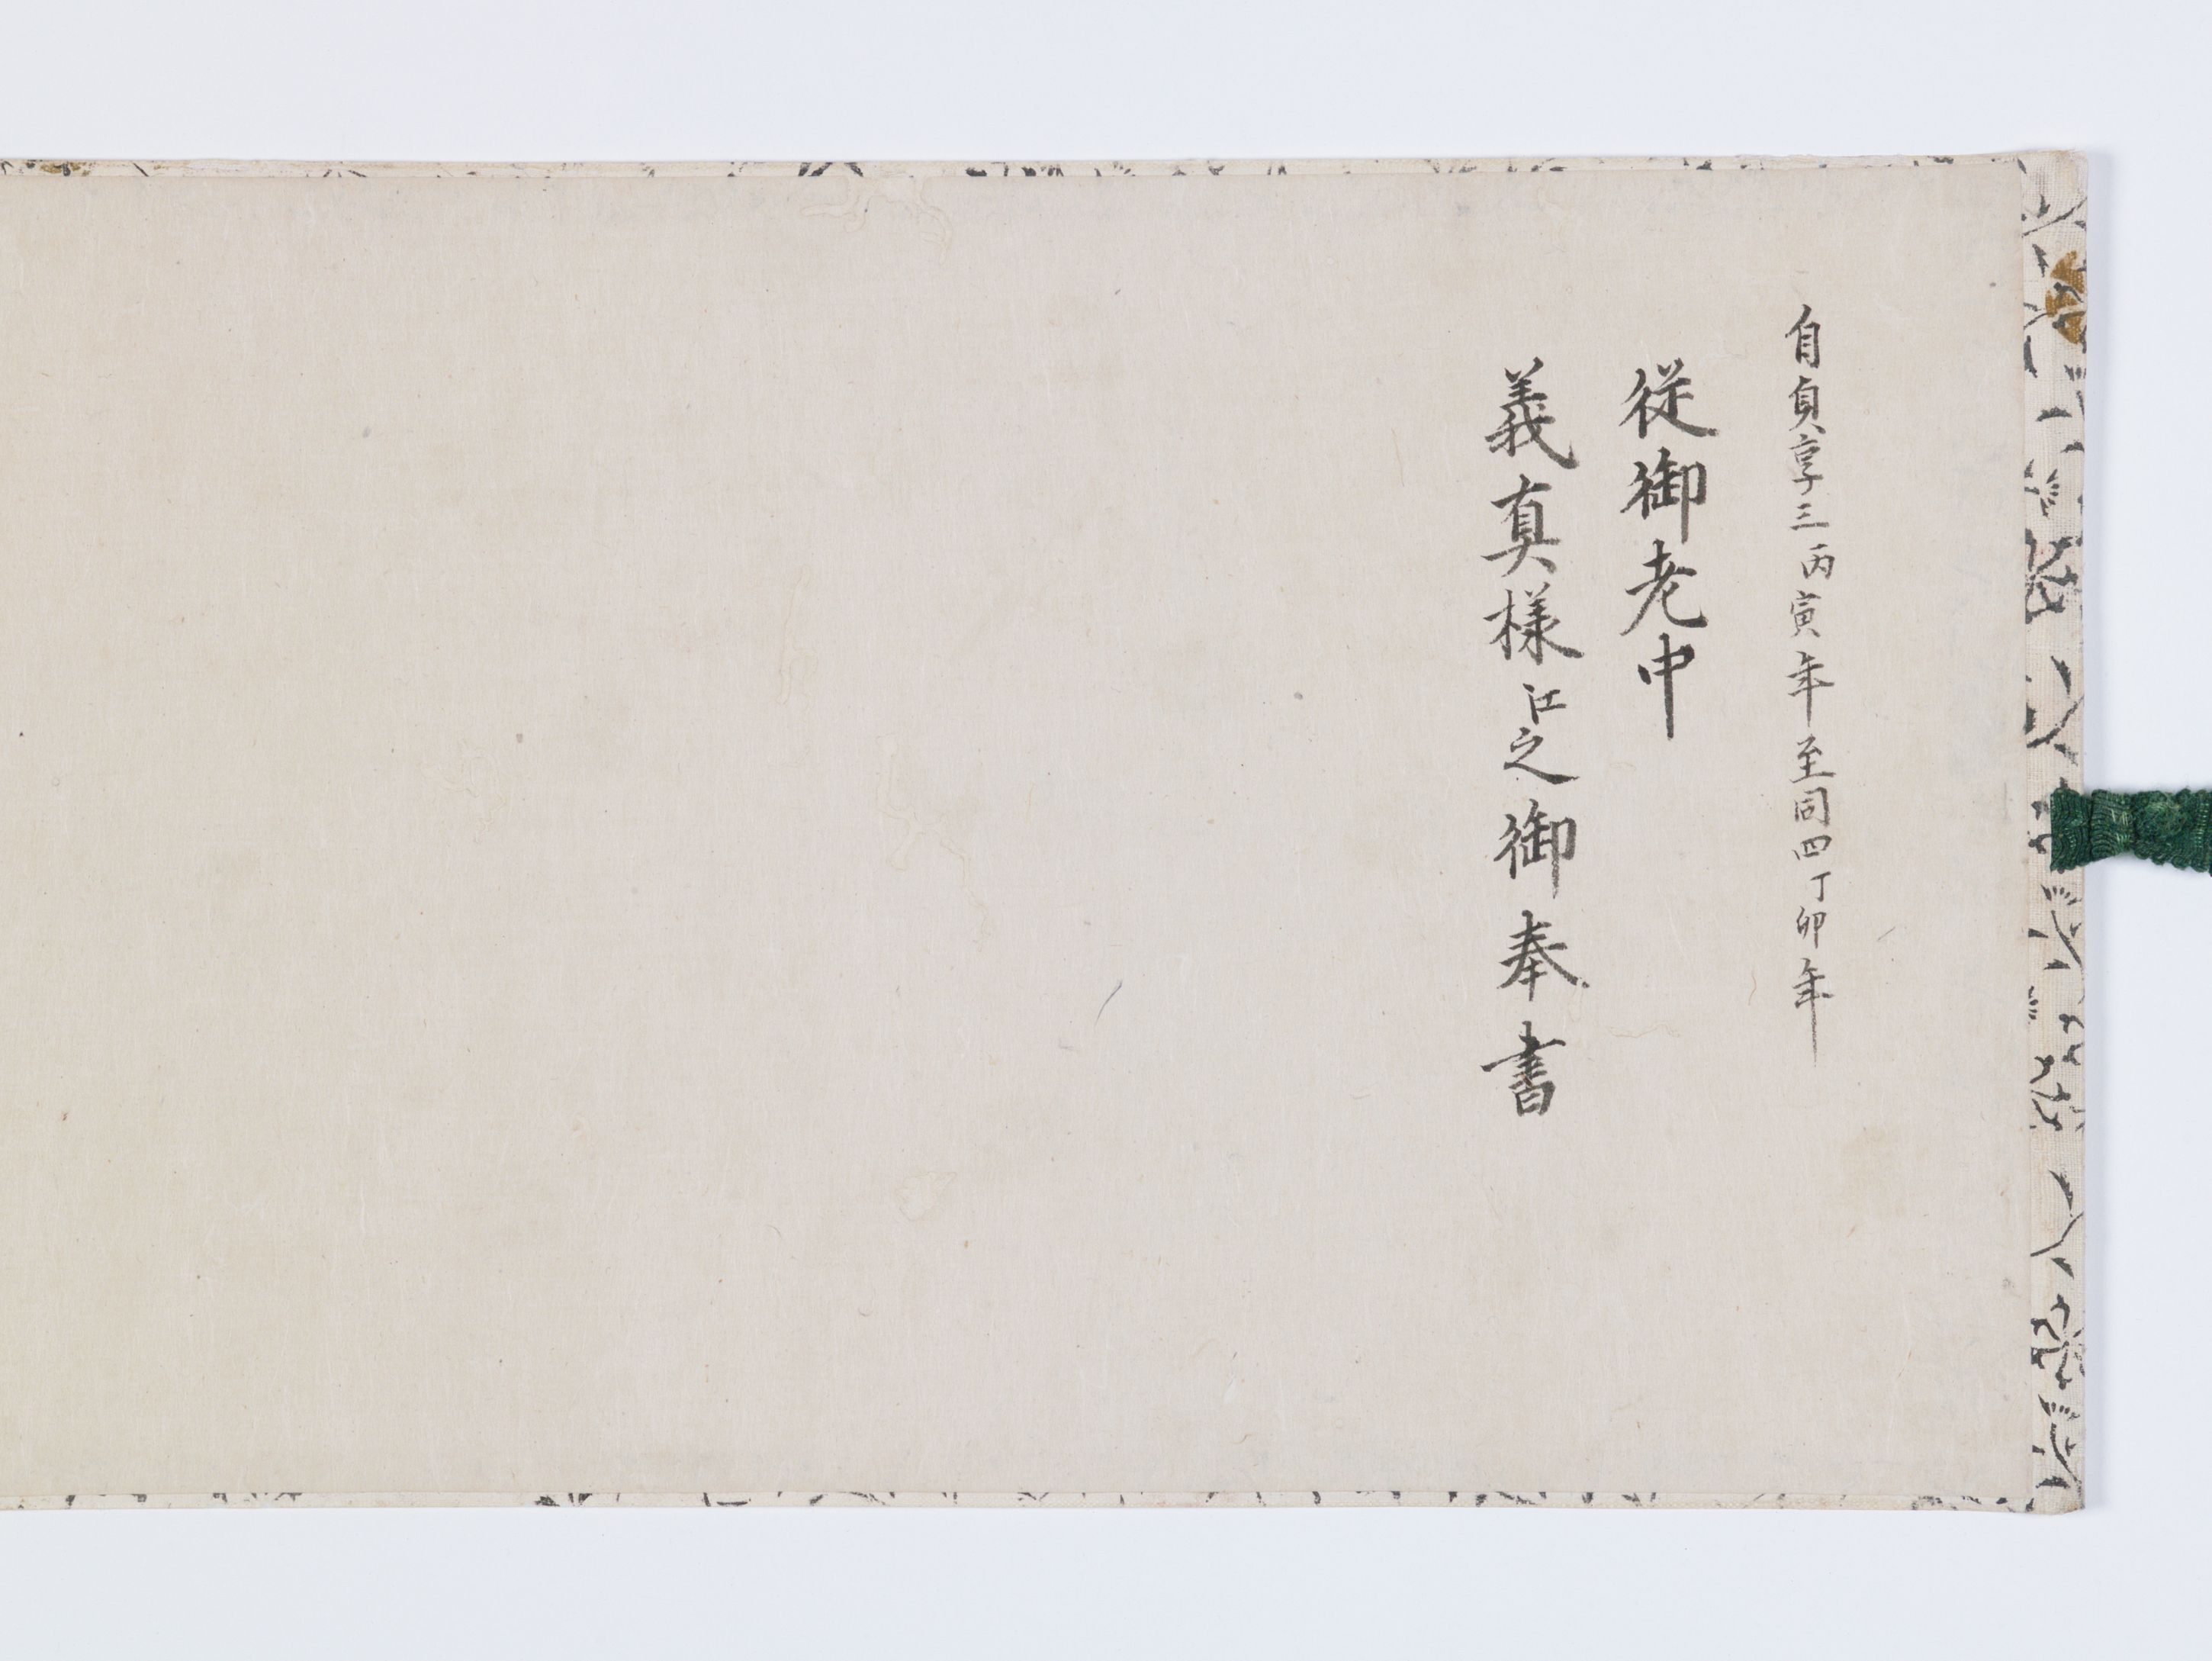 自貞享三丙寅年至同四丁卯年
従御老中
義真様江之御奉書